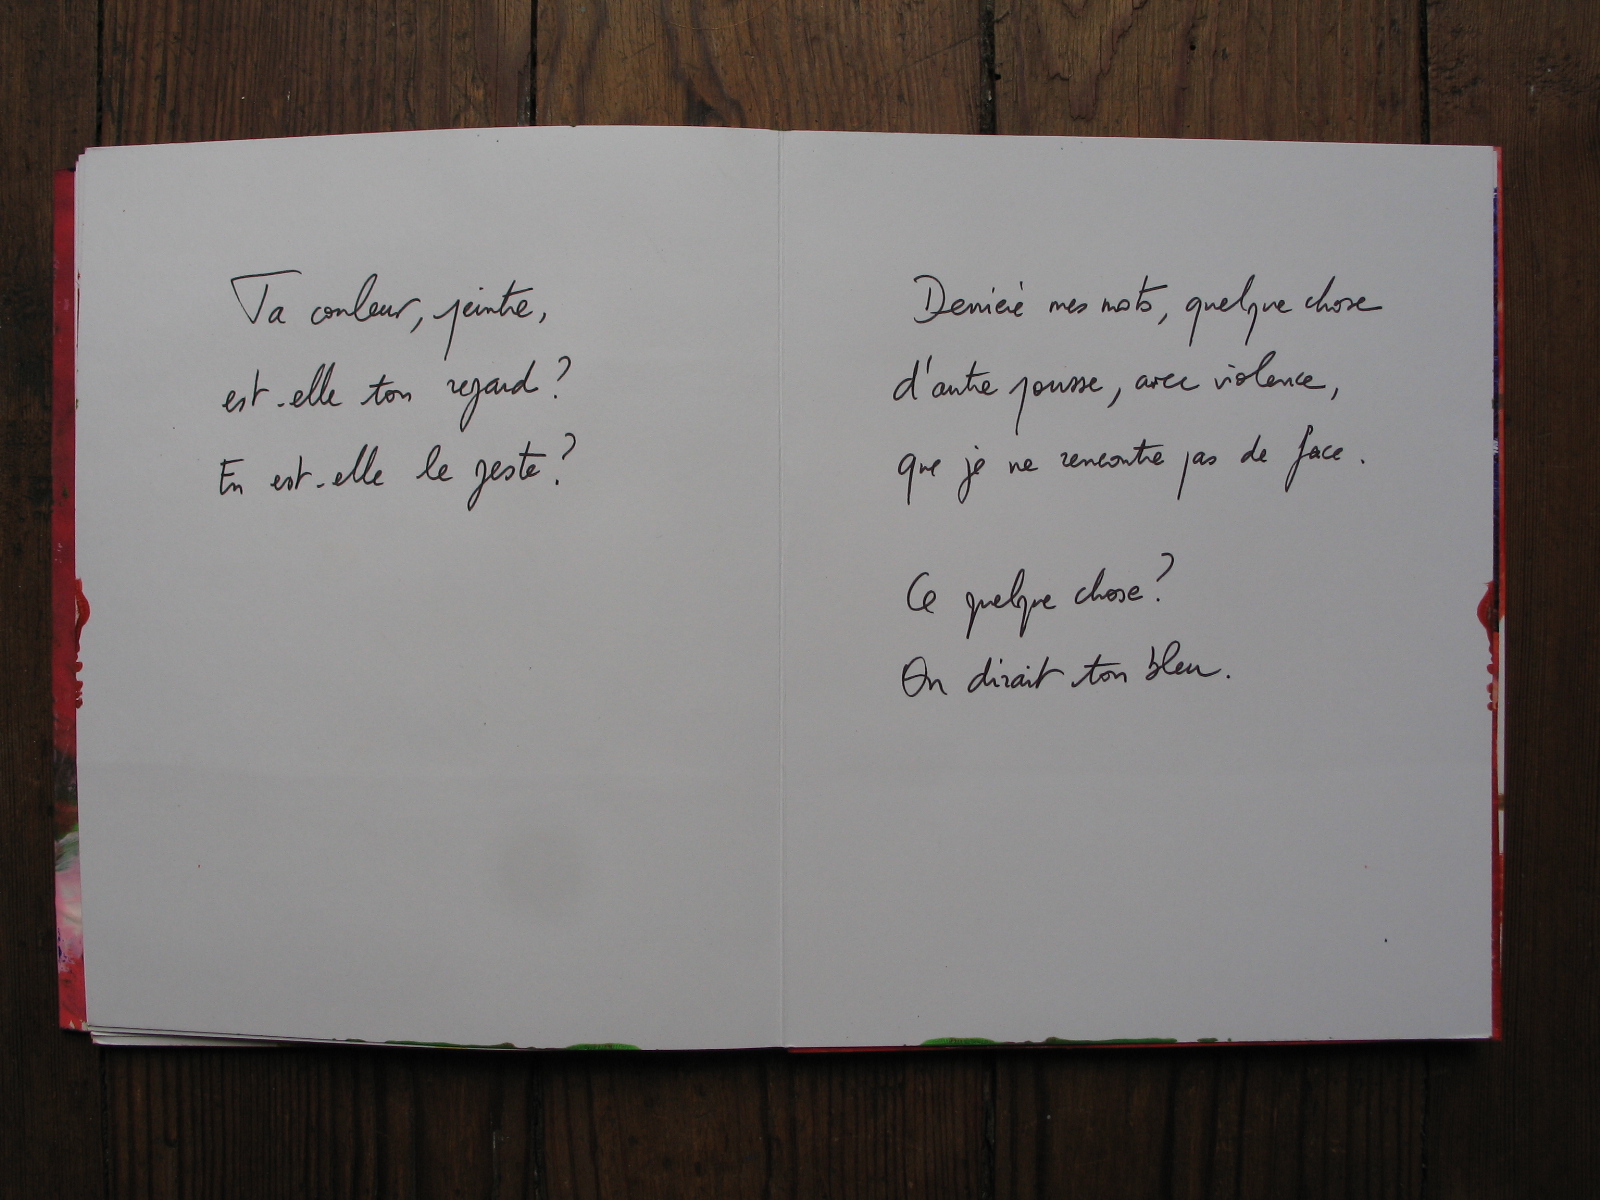 Ta couleur, peintre,
est-elle ton regard ?
En est-elle le geste ?
Derrière mes mots, quelque chose
d'autre pousse, avec violence,
que je ne rencontre pas de face.
Ce quelque chose ?
On dirait ton bleu.